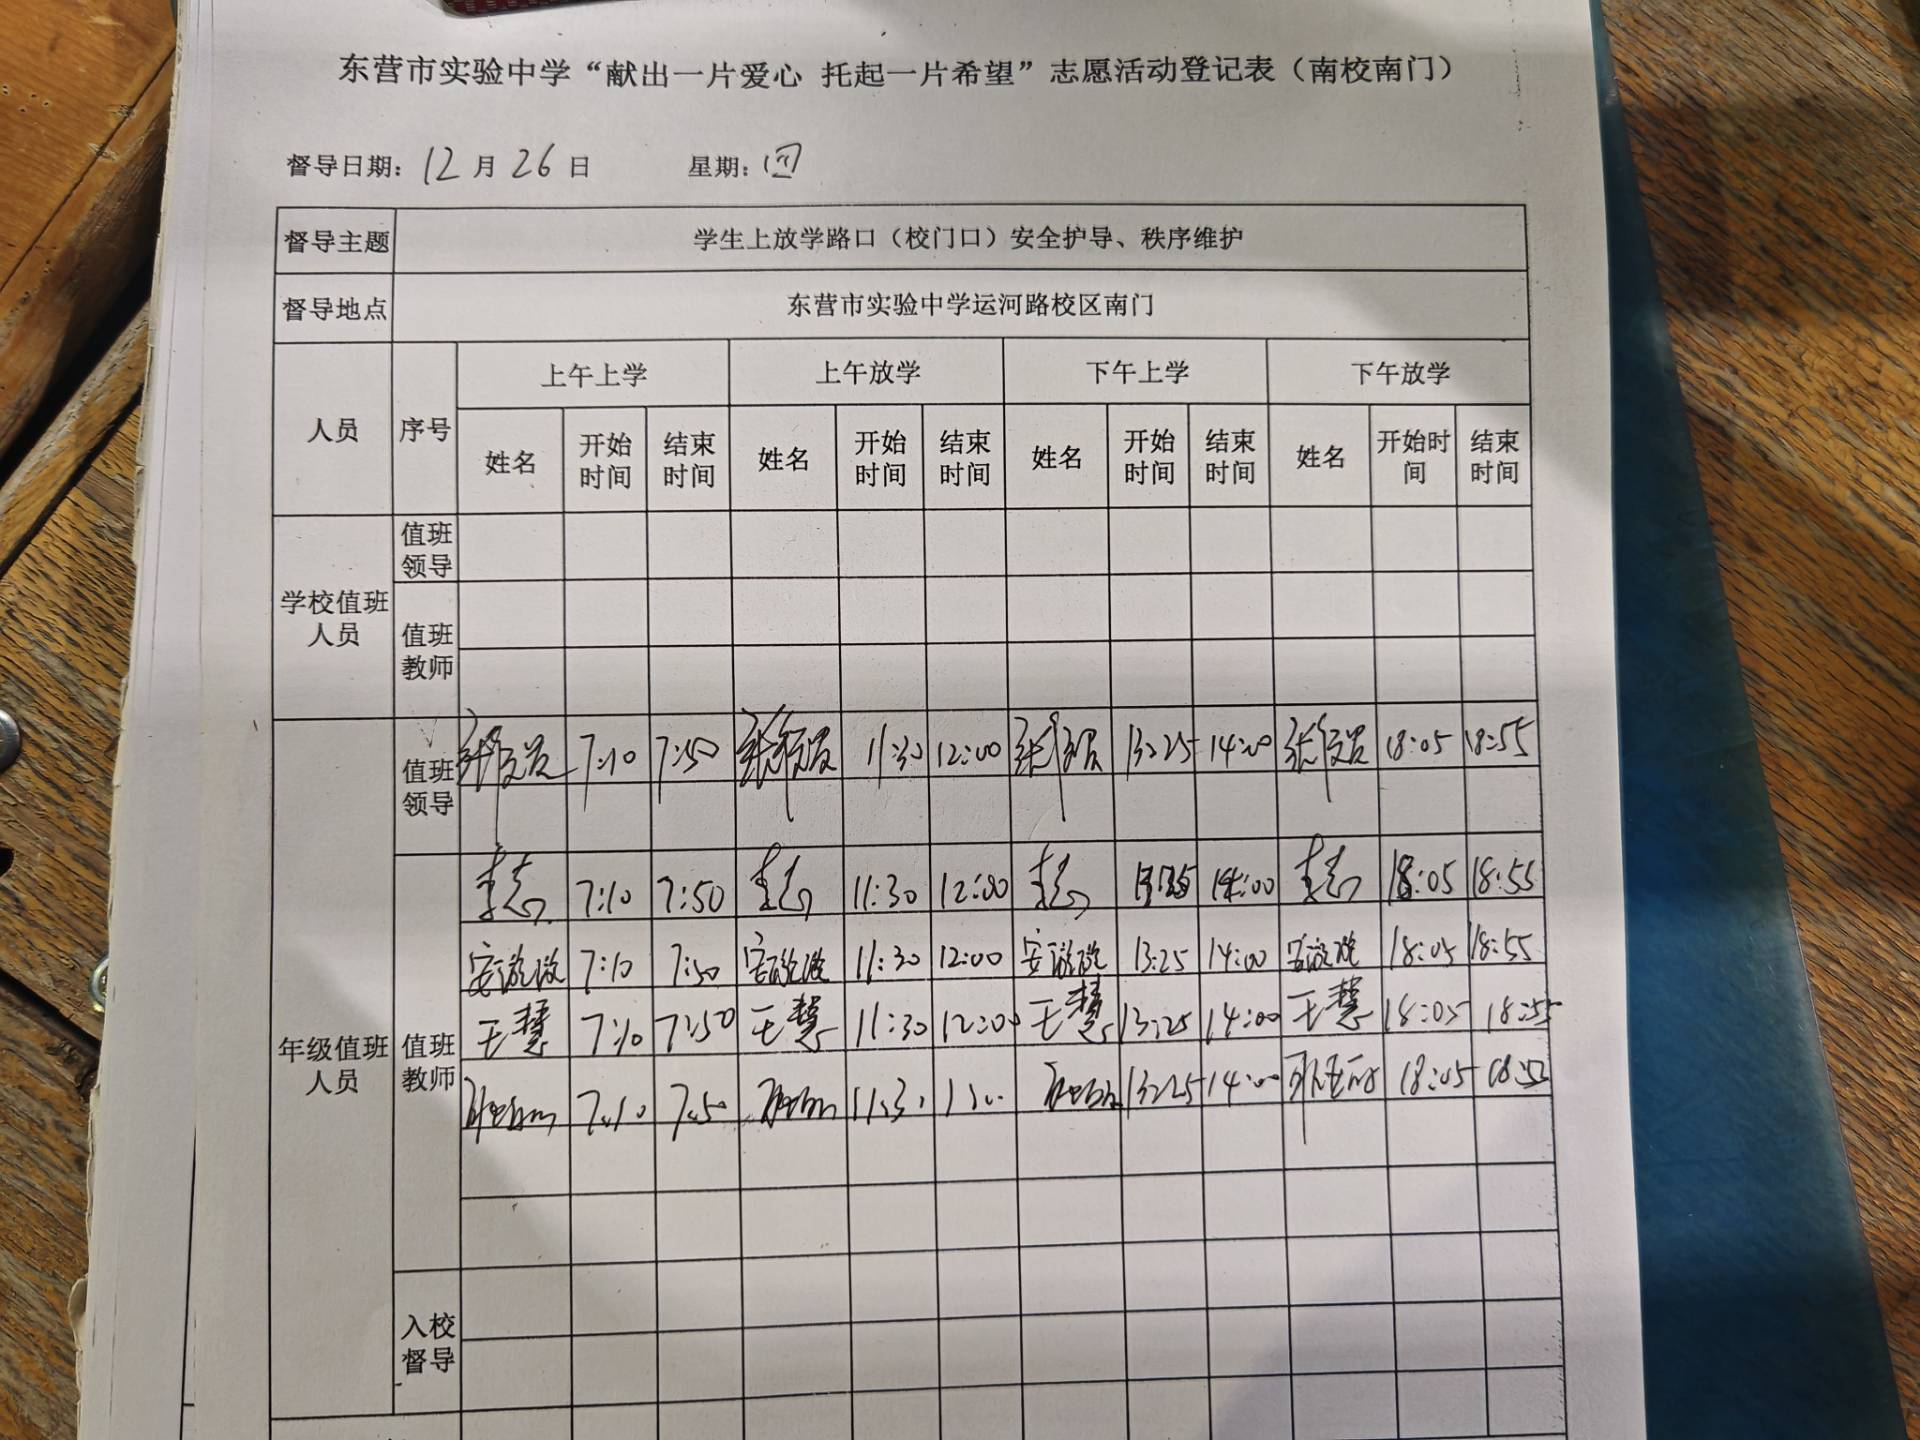 东营市实验中学“献出一片爱心 托起一片希望”志愿活动登记表（南校南门）
督导日期：12月26日 星期：四
督导主题 学生上放学路口（校门口）安全护导、秩序维护
督导地点 东营市实验中学运河路校区南门
人员 序号 上午上学 上午放学 下午上学 下午放学
姓名 开始时间 结束时间 姓名 开始时间 结束时间 姓名 开始时间 结束时间 姓名 开始时间 结束时间
学校值班人员 值班领导
值班教师
年级值班人员 值班领导 7:10 7:50 11:30 12:00 13:25 14:00 18:05 18:55
值班教师 李志 7:10 7:50 李志 11:30 12:00 李志 14:00 李志 18:05 18:55
7:10 7:50 11:30 12:00 13:25 14:00 18:05 18:55
王慧 7:10 7:50 王慧 11:30 12:00 王慧 13:25 14:00 王慧 18:05 18:55
7:10 7:50 13:25 14:00 18:05 18:55
入校督导